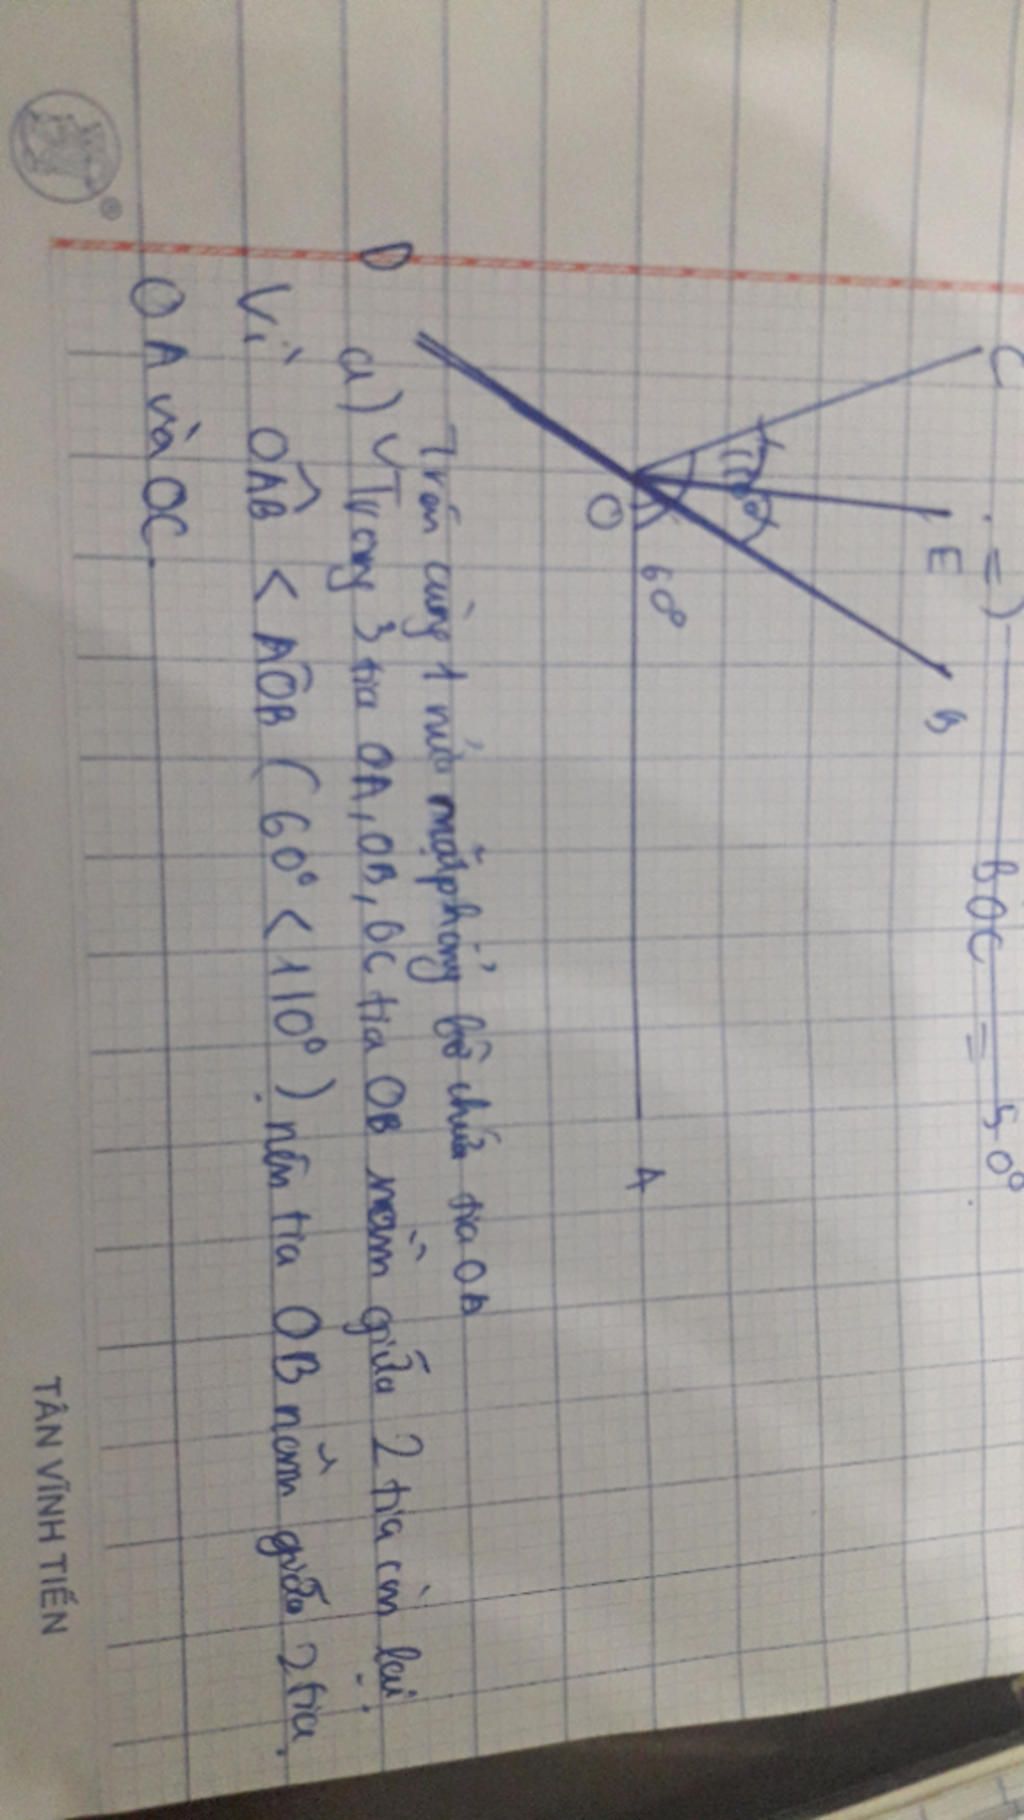 . =) BOC = 50°
C
E
B
110°
60°
O
A
D
Trên cùng 1 nửa mặt phẳng bờ chứa tia OA
a) Trong 3 tia OA, OB, OC tia OB nằm giữa 2 tia còn lại
Vì OÂB < AÔB (60° < 110°) nên tia OB nằm giữa 2 tia
OA và OC.
®
TÂN VĨNH TIẾN